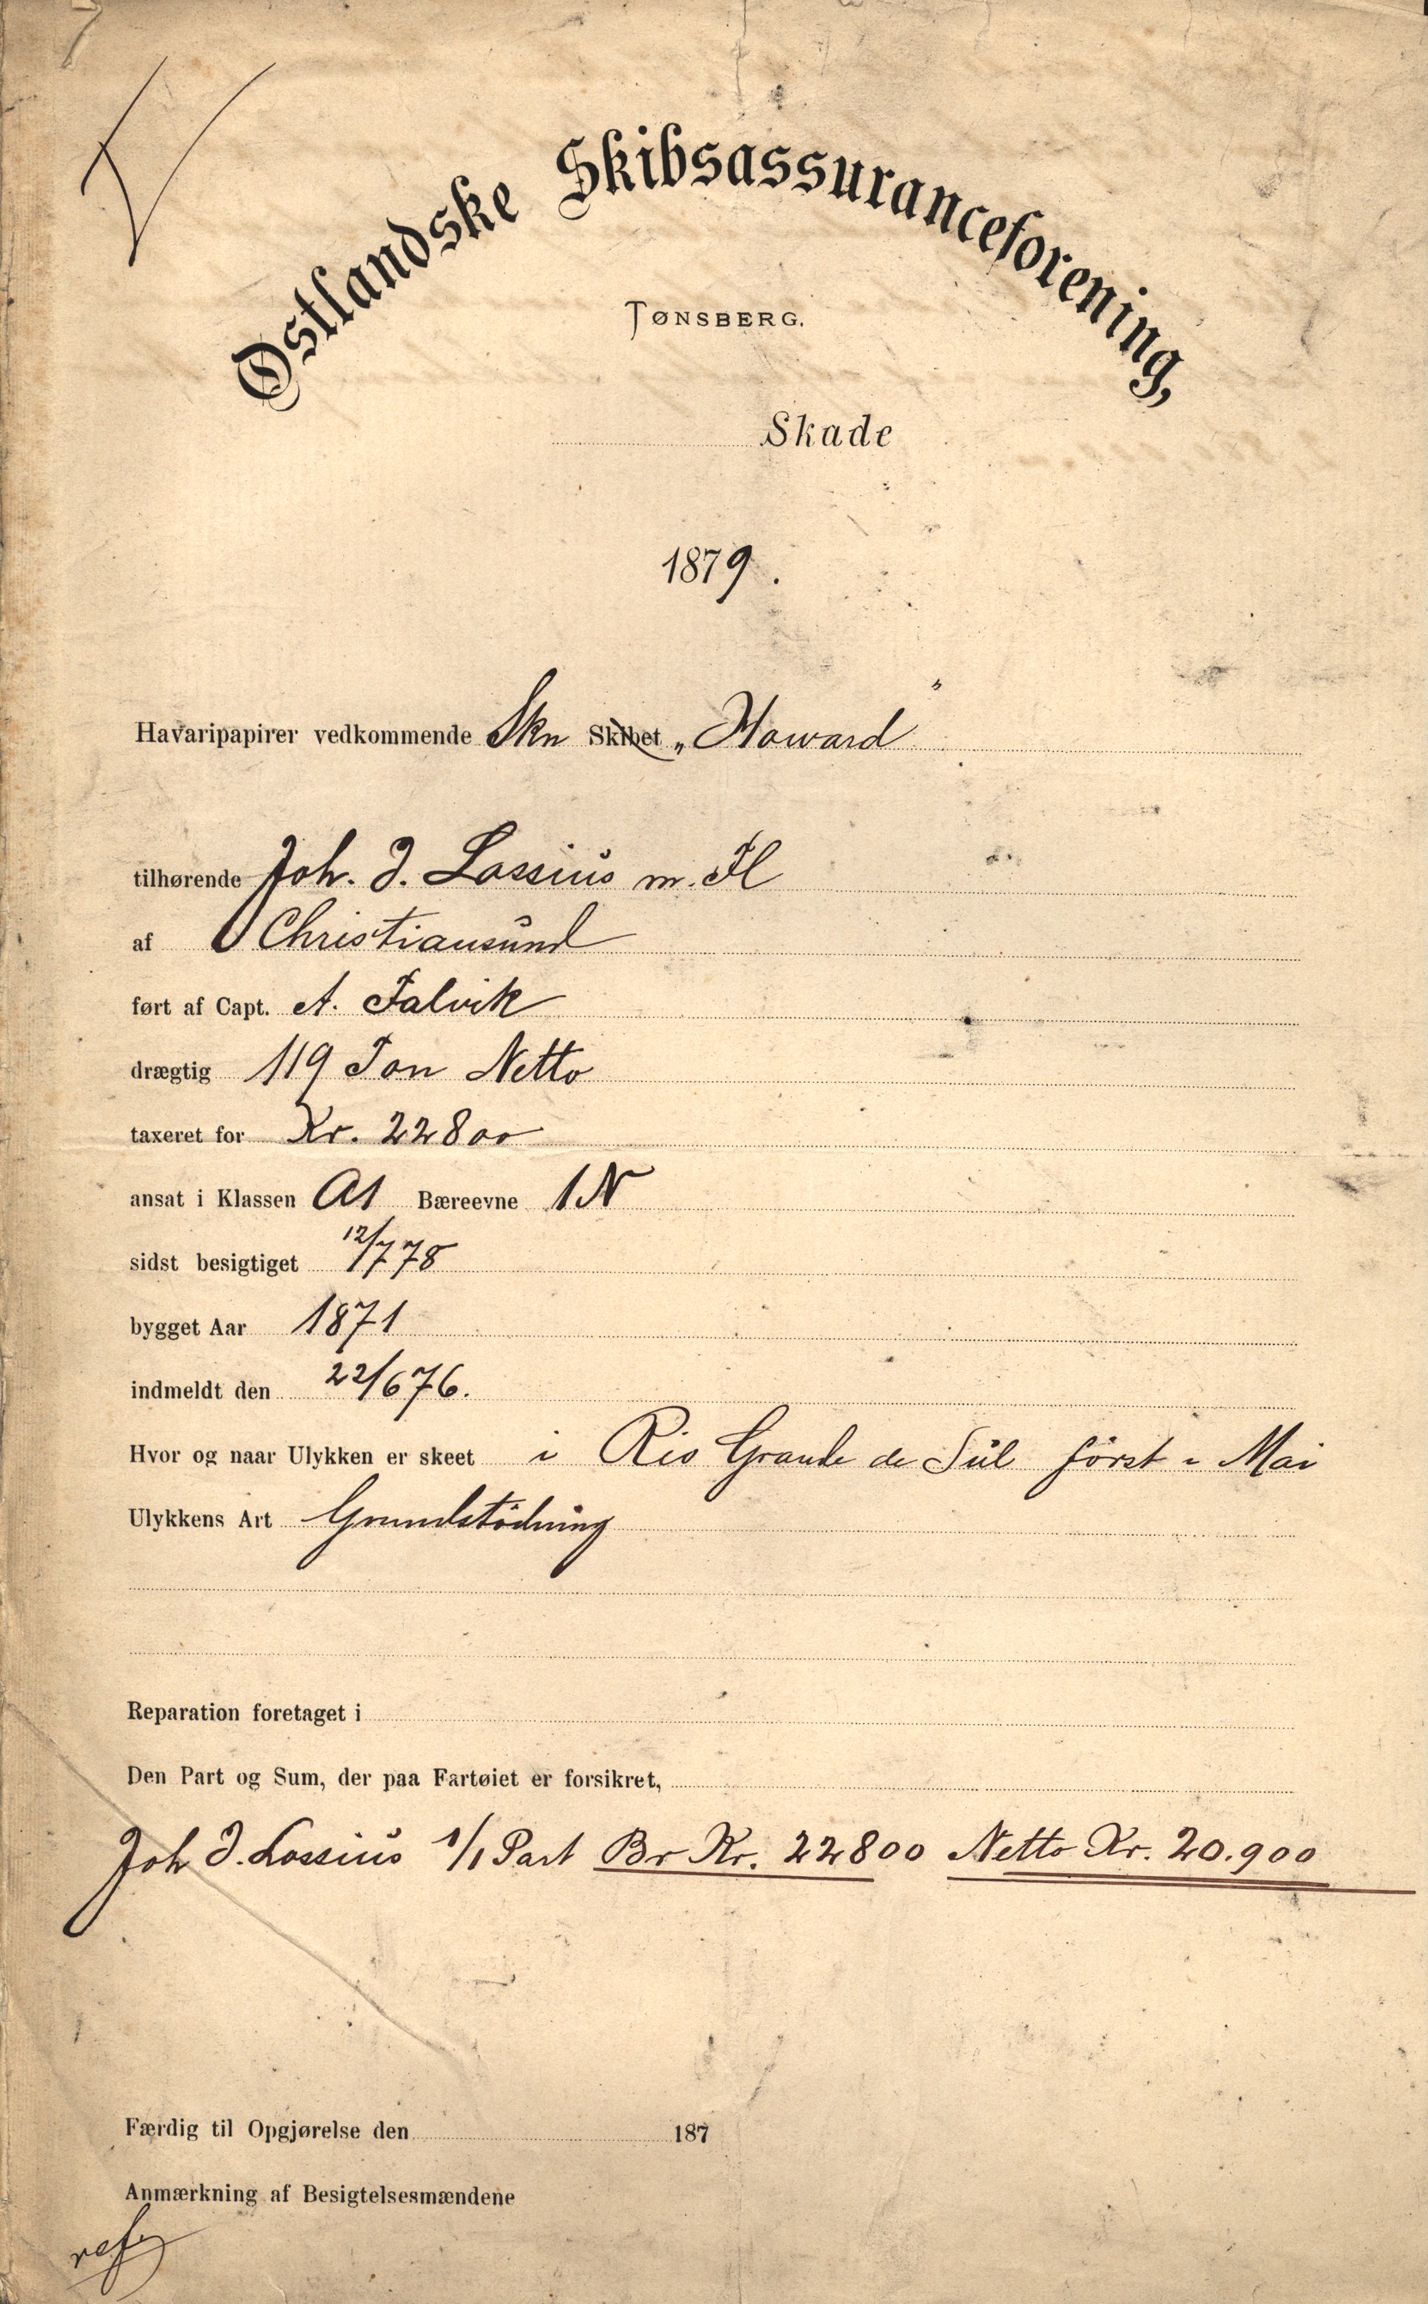 Østlandske Skibsassuranceforening,
TØNSBERG.
Skade
1879.
Havaripapirer vedkommende Skn Skibet „Howard"
tilhørende Joh. J. Lossius m. Fl
af Christiansund
ført af Capt. A. Falvik
drægtig 119 Ton Netto
taxeret for Kr. 22800
ansat i Klassen A1 Bæreevne 1 N
sidst besigtiget 12/7 78
bygget Aar 1871
indmeldt den 22/6 76.
Hvor og naar Ulykken er skeet i Rio Grande do Sül først i Mai
Ulykkens Art Grundstödning
Reparation foretaget i
Den Part og Sum, der paa Fartøiet er forsikret,
Joh J. Lossius 1/1 Part Br Kr. 22800 Netto Kr. 20.900
Færdig til Opgjørelse den 187
Anmærkning af Besigtelsesmændene